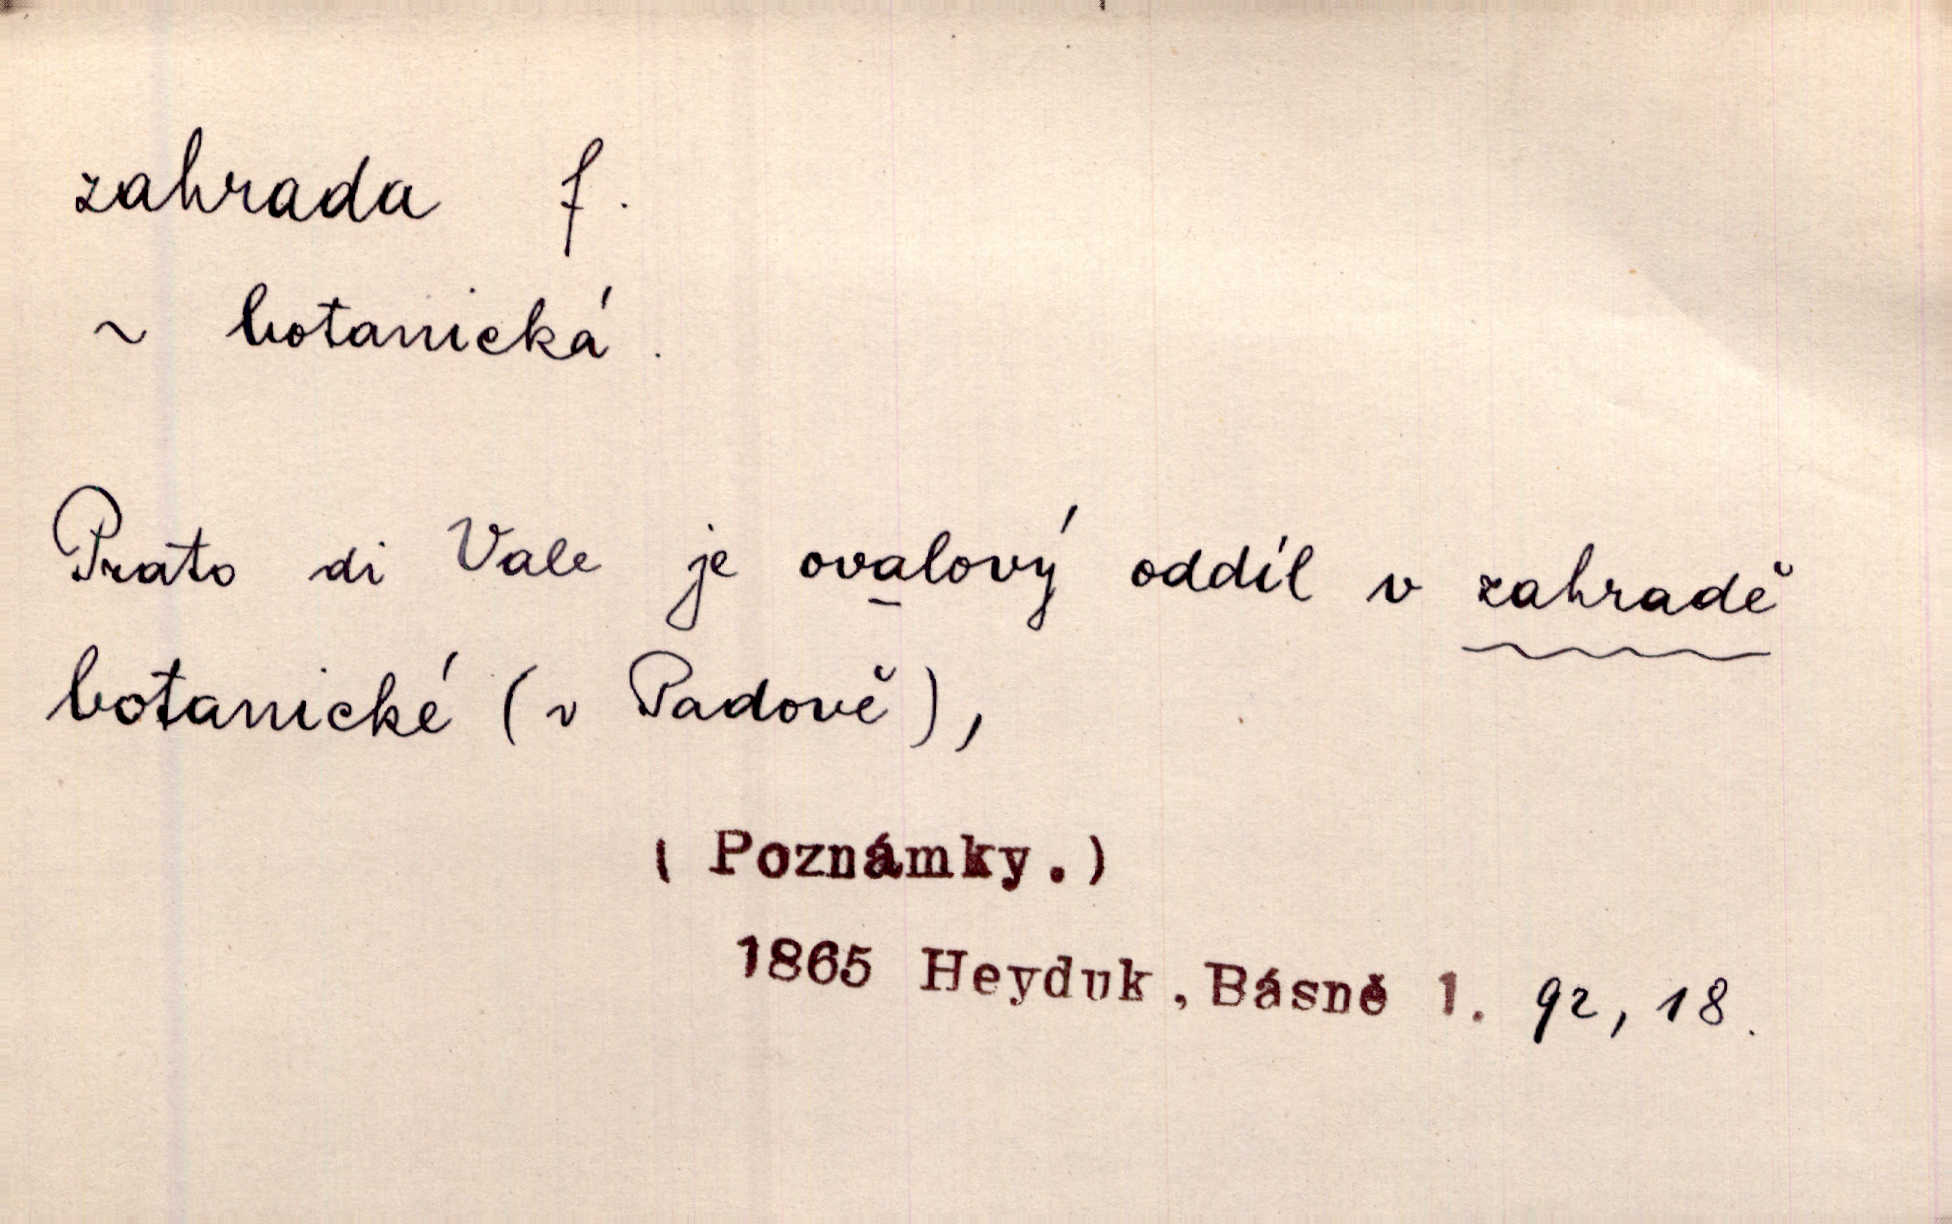 zahrada f.
~ botanická.
Prato di Vale je ovalový oddíl v zahradě
botanické (v Padově),
(Poznámky.)
1865 Heyduk, Básně 1. 92, 18.